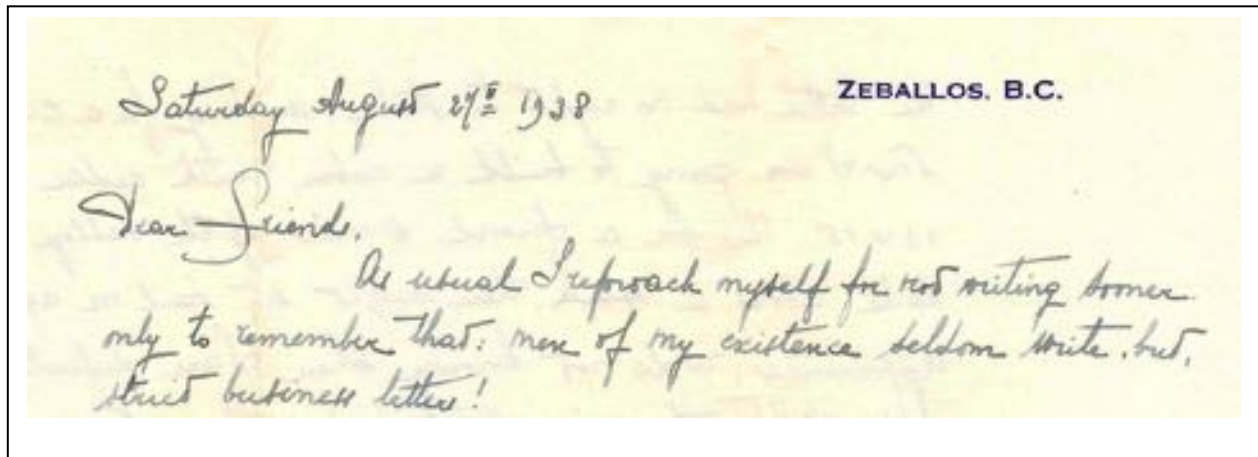 Saturday August 27th 1938
ZEBALLOS, B.C.
Dear Friends,
As usual I reproach myself for not writing sooner
only to remember that: men of my existence seldom write, but,
strict business letters!